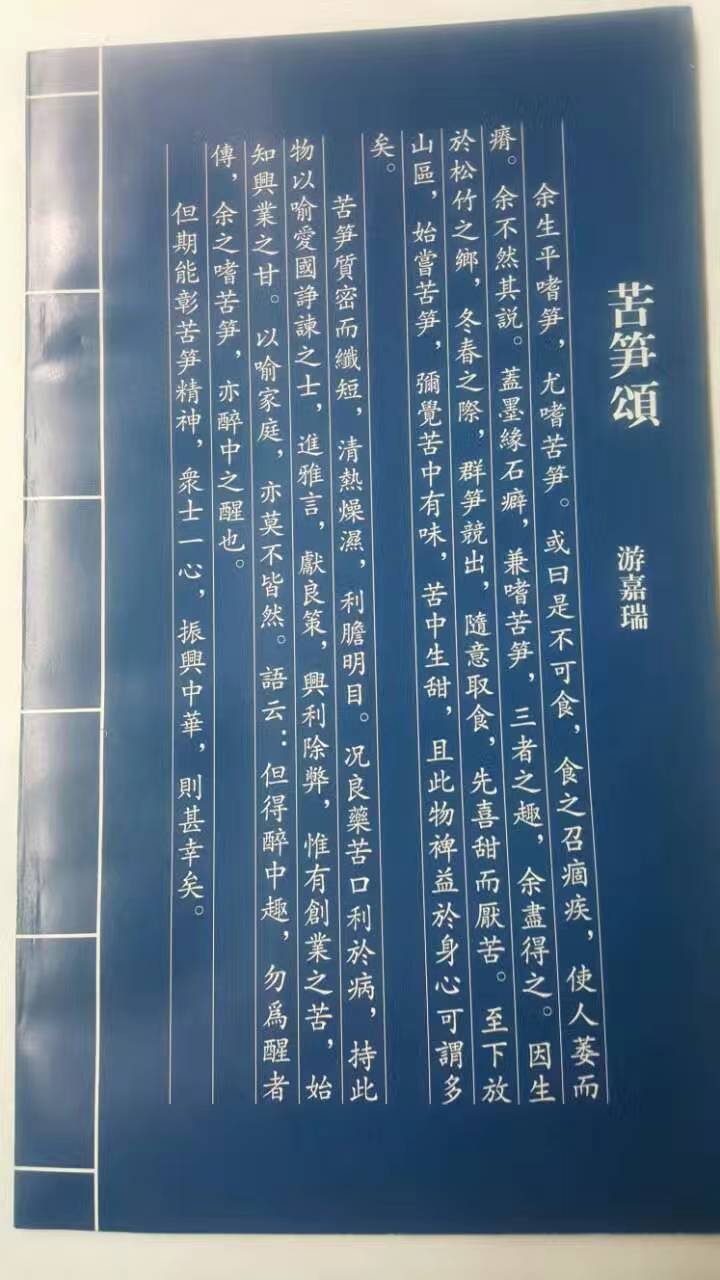 苦笋頌
游嘉瑞
余生平嗜笋，尤嗜苦笋。或曰是不可食，食之召痼疾，使人萎而
瘠。余不然其説。蓋墨緣石癖，兼嗜苦笋，三者之趣，余盡得之。因生
於松竹之鄉，冬春之際，群笋競出，隨意取食，先喜甜而厭苦。至下放
山區，始嘗苦笋，彌覺苦中有味，苦中生甜，且此物裨益於身心可謂多
矣。
苦笋質密而纖短，清熱燥濕，利膽明目。况良藥苦口利於病，持此
物以喻愛國諍諫之士，進雅言，獻良策，興利除弊，惟有創業之苦，始
知興業之甘。以喻家庭，亦莫不皆然。語云：但得醉中趣，勿爲醒者
傳，余之嗜苦笋，亦醉中之醒也。
但期能彰苦笋精神，衆士一心，振興中華，則甚幸矣。